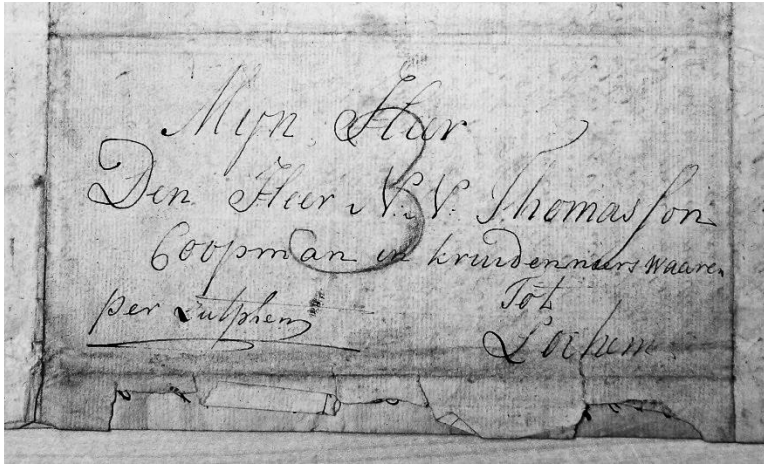 Myn Heer
3
Den Heer N. V. Thomasson
Coopman in kruidenniers waaren
Tot
per Zutphen
Lochem